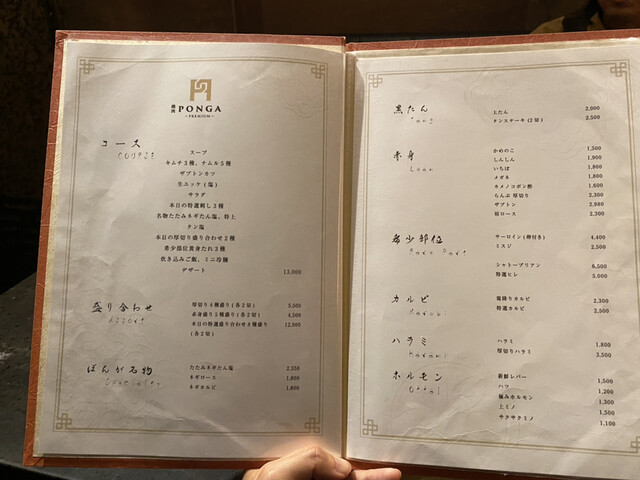 焼肉 PONGA
-PREMIUM-
コース
course
スープ
キムチ3種、ナムル5種
ザブトンカツ
生ユッケ(塩)
サラダ
本日の特選刺し3種
名物たたみネギたん塩、特上
タン塩
本日の厚切り盛り合わせ2種
希少部位黄身たれ3種
炊き込みご飯、ミニ冷麺
デザート 13,000
盛り合わせ
Assort
厚切り4種盛り(各2切) 5,500
赤身盛り5種盛り(各2切) 4,500
本日の特選盛り合わせ8種盛り 12,805
(各2切)
ぽんが名物
Specialty
たたみネギたん塩 2,350
ネギロース 1,800
ネギカルビ 1,800
黒たん
Tang
上たん 2,000
タンステーキ(2切) 2,500
赤身
Lean
かめのこ 1,500
しんしん 1,900
いちぼ 1,800
メガネ 1,800
カメノコポン酢 1,600
らんぷ厚切り 2,300
ザブトン 2,980
肩ロース 2,300
希少部位
Rare Part
サーロイン(卵付き) 4,400
ミスジ 2,500
シャトーブリアン 6,500
特選ヒレ 5,000
カルビ
Karubi
霜降りカルビ 2,300
特選カルビ 2,500
ハラミ
Harami
ハラミ 1,800
厚切りハラミ 3,500
ホルモン
Offal
新鮮レバー 1,500
ハツ 1,200
極みホルモン 1,300
上ミノ 1,500
サクサクミノ 1,100